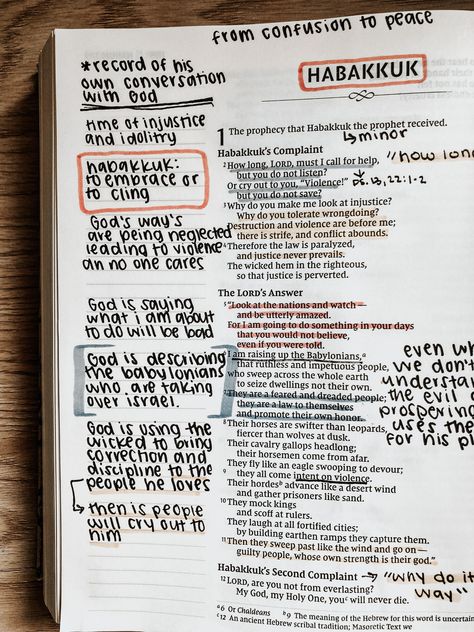 from confusion to peace
*record of his
own conversation
with God
time of injustice
and idolitry
habakkuk:
to embrace or
to cling
God's way's
are being neglected
leading to violence
an no one cares
God is saying
what i am about
to do will be bad
God is describing
the babylonians
who are taking
over israel.
God is using the
wicked to bring
correction and
discipline to the
people he loves
then is people
will cry out to
him
HABAKKUK
1 The prophecy that Habakkuk the prophet received.
minor
Habakkuk's Complaint
2 How long, LORD, must I call for help,
but you do not listen?
"how long
Or cry out to you, "Violence!"
but you do not save?
Ps. 13, 22:1-2
3 Why do you make me look at injustice?
Why do you tolerate wrongdoing?
Destruction and violence are before me;
there is strife, and conflict abounds.
4 Therefore the law is paralyzed,
and justice never prevails.
The wicked hem in the righteous,
so that justice is perverted.
The LORD's Answer
5 "Look at the nations and watch—
and be utterly amazed.
For I am going to do something in your days
that you would not believe,
even if you were told.
6 I am raising up the Babylonians,a
that ruthless and impetuous people,
who sweep across the whole earth
to seize dwellings not their own.
7 They are a feared and dreaded people;
they are a law to themselves
and promote their own honor.
8 Their horses are swifter than leopards,
fiercer than wolves at dusk.
Their cavalry gallops headlong;
their horsemen come from afar.
They fly like an eagle swooping to devour;
9 they all come intent on violence.
Their hordesb advance like a desert wind
and gather prisoners like sand.
10 They mock kings
and scoff at rulers.
They laugh at all fortified cities;
by building earthen ramps they capture them.
11 Then they sweep past like the wind and go on—
guilty people, whose own strength is their god."
even w
we don't
understa
the evil
prosperin
uses the
for his p
Habakkuk's Second Complaint
"why do it
way"
12 LORD, are you not from everlasting?
My God, my Holy One, youc will never die.
a 6 Or Chaldeans b 9 The meaning of the Hebrew for this word is uncertain
c 12 An ancient Hebrew scribal tradition; Masoretic Text we